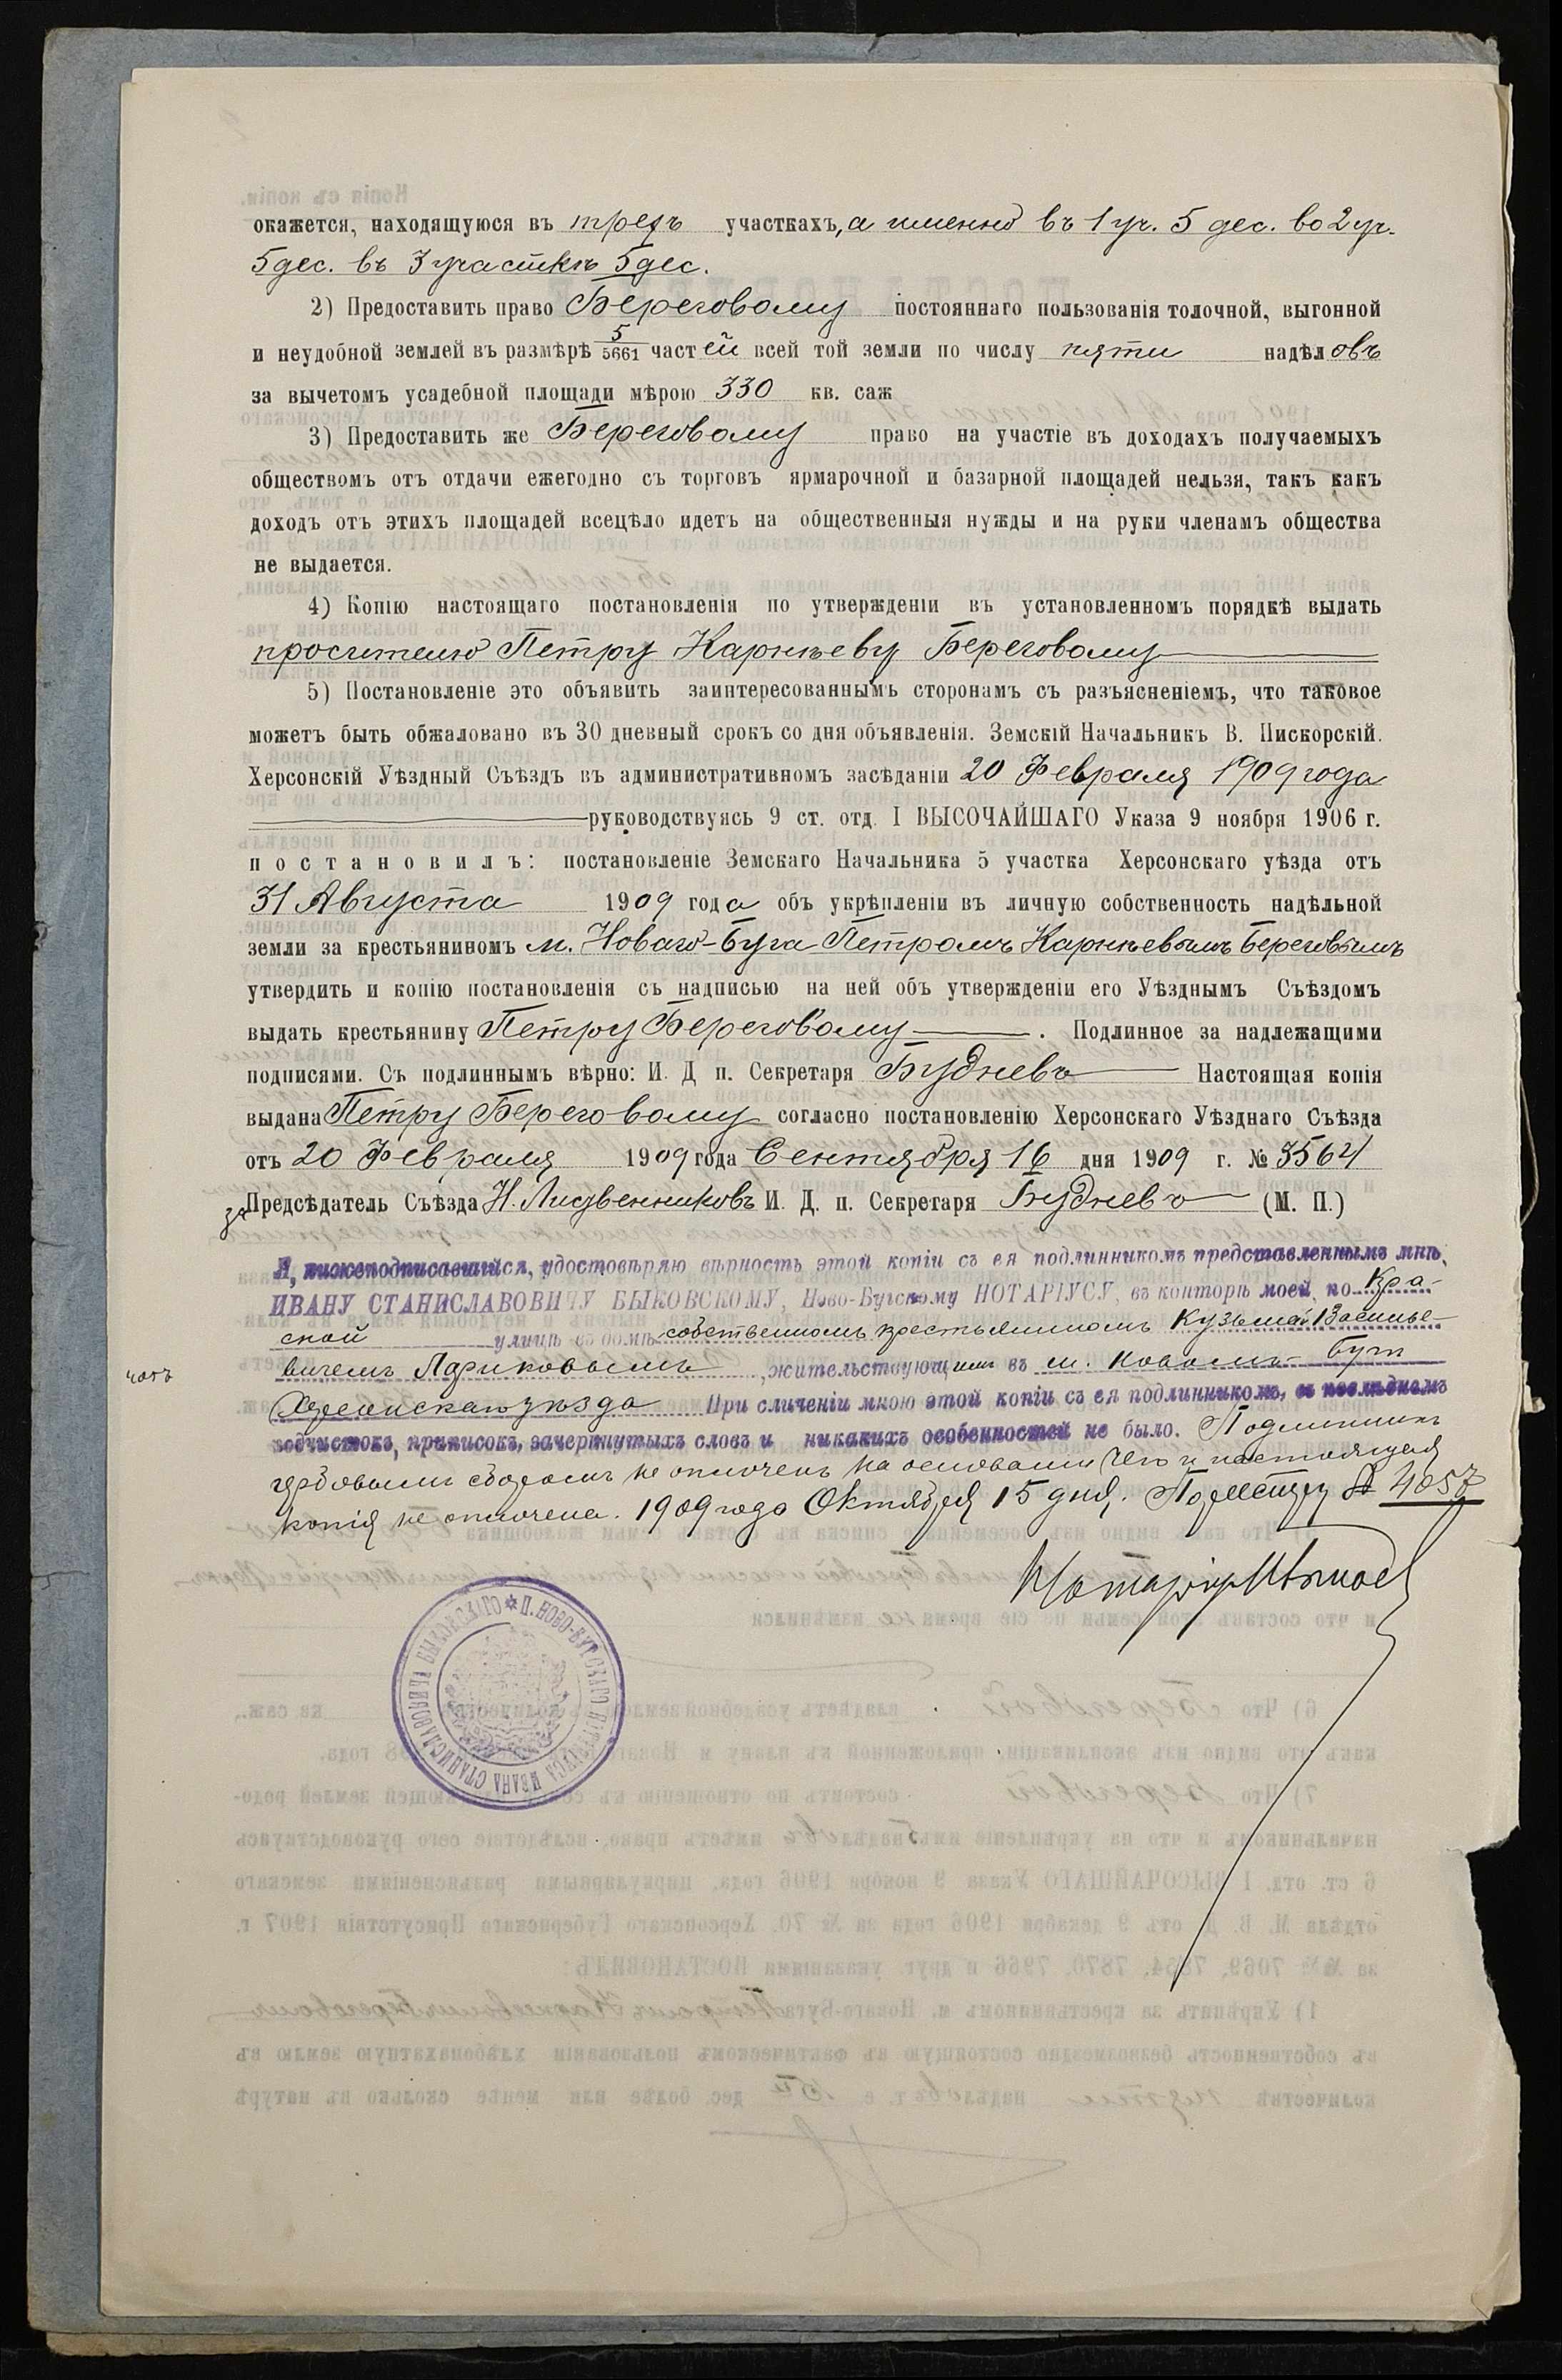 окажется, находящуюся въ трехъ участкахъ, а именно въ 1 уч. 5 дес. во 2 уч.
5 дес. въ 3 участкѣ 5 дес.
2) Предоставить право Береговому постояннаго пользованія толочной, выгонной
и неудобной землей въ размѣрѣ 5/5661 частей всей той земли по числу пяти надѣловъ
за вычетомъ усадебной площади мѣрою 330 кв. саж
3) Предоставить же Береговому право на участіе въ доходахъ получаемыхъ
обществомъ отъ отдачи ежегодно съ торговъ ярмарочной и базарной площадей нельзя, такъ какъ
доходъ отъ этихъ площадей всецѣло идетъ на общественныя нужды и на руки членамъ общества
не выдается.
4) Копію настоящаго постановленія по утвержденіи въ установленномъ порядкѣ выдать
просителю Петру Карнѣеву Береговому
5) Постановленіе это объявить заинтересованнымъ сторонамъ съ разъясненіемъ, что таковое
можетъ быть обжаловано въ 30 дневный срокъ со дня объявленія. Земскій Начальникъ В. Пискорскій.
Херсонскій Уѣздный Съѣздъ въ административномъ засѣданіи 20 Февраля 1909 года
руководствуясь 9 ст. отд. I ВЫСОЧАЙШАГО Указа 9 ноября 1906 г.
постановилъ: постановленіе Земскаго Начальника 5 участка Херсонскаго уѣзда отъ
31 Августа 1909 года объ укрѣпленіи въ личную собственность надѣльной
земли за крестьяниномъ м. Новаго-Буга Петромъ Карнѣевымъ Береговымъ
утвердить и копію постановленія съ надписью на ней объ утвержденіи его Уѣзднымъ Съѣздомъ
выдать крестьянину Петру Береговому. Подлинное за надлежащими
подписями. Съ подлиннымъ вѣрно: И. Д п. Секретаря Будневъ Настоящая копія
выдана Петру Береговому согласно постановленію Херсонскаго Уѣзднаго Съѣзда
отъ 20 Февраля 1909 года Сентября 16 дня 1909 г. № 3564
за Предсѣдатель Съѣзда Н. И. Д. п. Секретаря Будневъ (М. П.)
Я, нижеподписавшійся, удостовѣряю вѣрность этой копіи съ ея подлинникомъ представленнымъ мнѣ,
ИВАНУ СТАНИСЛАВОВИЧУ БЫКОВСКОМУ, Ново-Бугскому НОТАРІУСУ, въ конторѣ моей, по
улицѣ въ домѣ собственномъ крестьяниномъ Кузьмой Василье-
вичемъ, жительствующимъ въ м. Новомъ-Бугѣ
Херсонскаго уѣзда При сличеніи мною этой копіи съ ея подлинникомъ, въ послѣднемъ
подчистокъ, приписокъ, зачеркнутыхъ словъ и никакихъ особенностей не было. Подлинникъ
гербовымъ сборомъ не оплоченъ на основаніи чего и настоящая
копія не оплочена. 1909 года Октября 15 дня. По реестру № 4057
Нотаріусъ
П. НОВО-БУГСКАГО НОТАРІУСА ИВАНА СТАНИСЛАВОВИЧА БЫКОВСКАГО